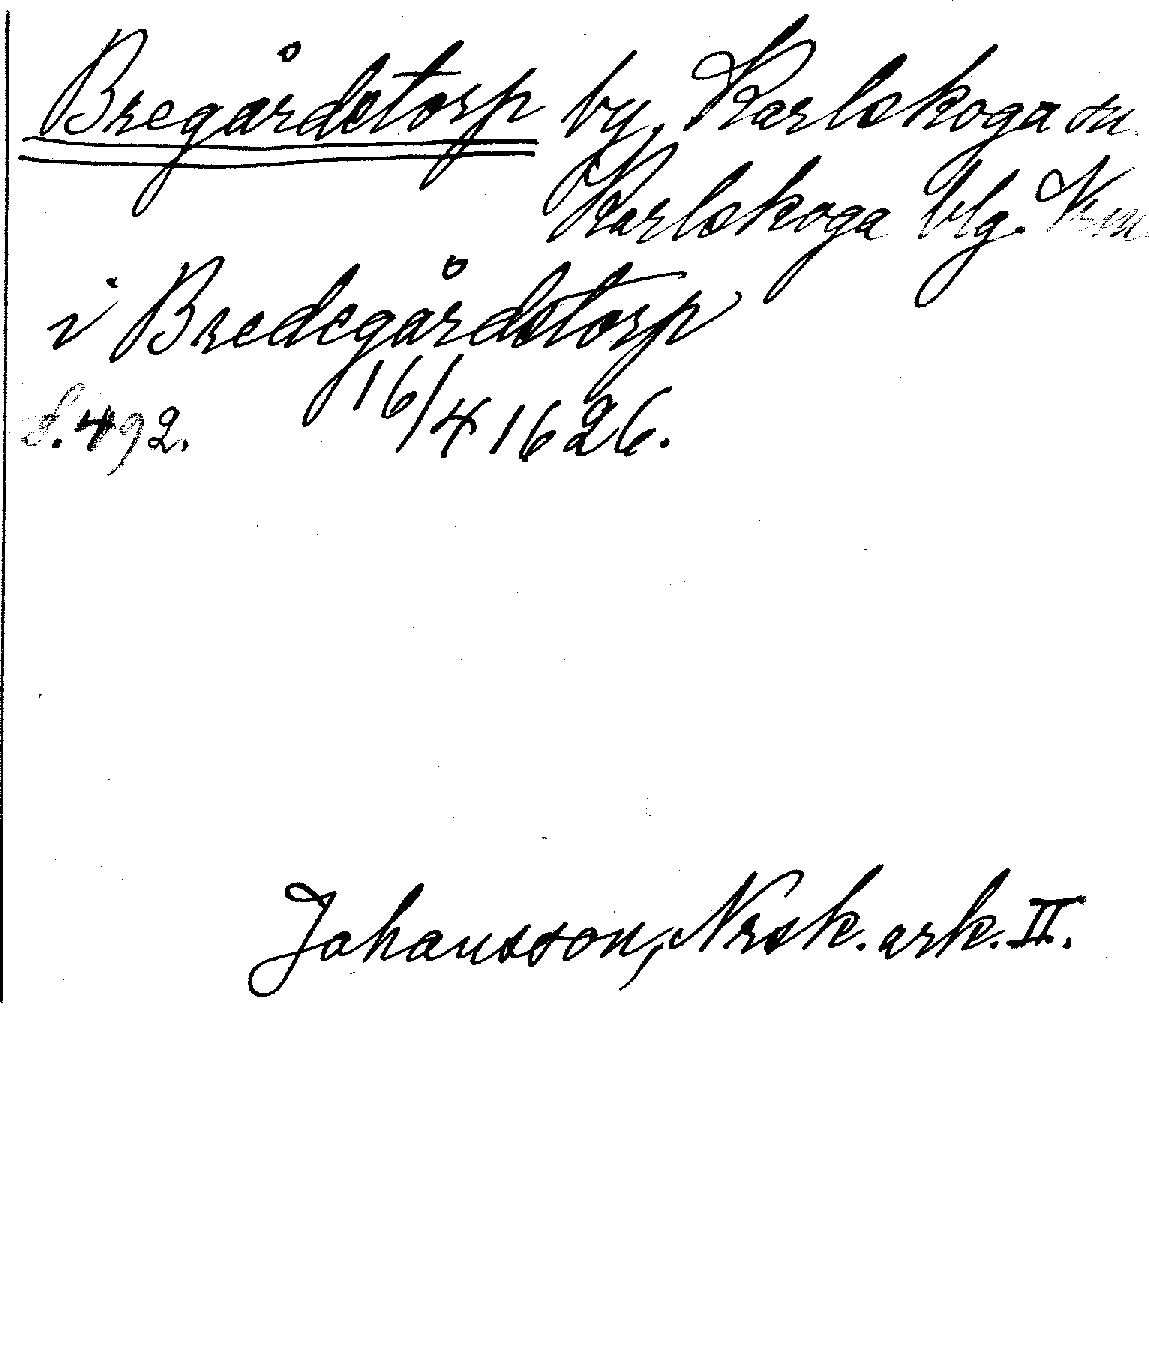 Bregårdstorp by, Karlskoga sn.
Karlskoga blg. Vrm
i Bredegårdstorp
S. 492. 16/4 1626.
Johansson, Nrsk. ark. II.